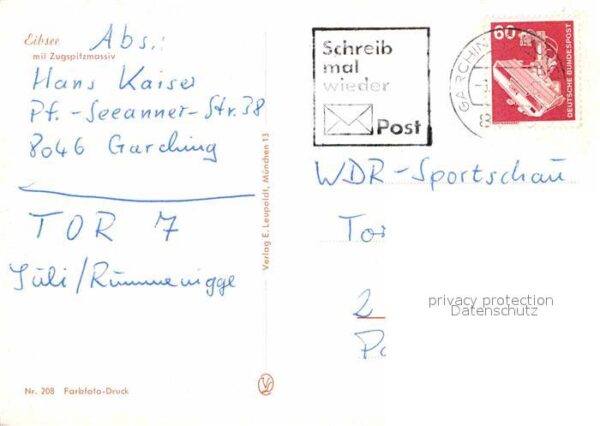 Eibsee
mit Zugspitzmassiv
Abs.:
Hans Kaiser
Pf.-Seeanner-Str. 38
8046 Garching
TOR 7
Jüli/Rummenigge
Nr. 208 Farbfoto-Druck
Verlag E. Leupoldt, München 13
Schreib
mal
wieder
Post
GARCHIN
8
60
DEUTSCHE BUNDESPOST
WDR-Sportschau
Tor
2
privacy protection
Datenschutz